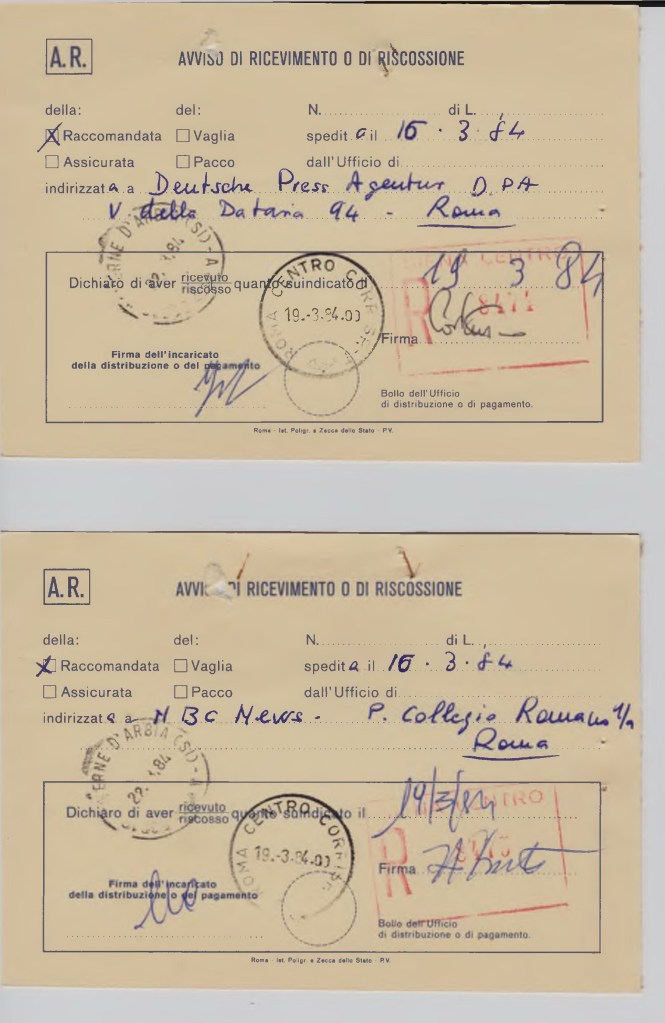 A.R.
AVVISO DI RICEVIMENTO O DI RISCOSSIONE
della: del: N. di L.
Raccomandata Vaglia spedita il 16 . 3 . 84
Assicurata Pacco dall'Ufficio di
indirizzata a Deutsche Press Agentur DPA
V. della Dataria 94 - Roma
ERNE D'ARBIA (SI)
SIENA CENTRO
R
Dichiaro di aver ricevuto riscosso quanto suindicato il 19 3 84
ROMA CENTRO CORRISP.
19.-3.84.00
Firma
Firma dell'incaricato
della distribuzione o del pagamento
Bollo dell'Ufficio
di distribuzione o di pagamento.
Roma - Ist. Poligr. e Zecca dello Stato - P.V.
A.R.
AVVISO DI RICEVIMENTO O DI RISCOSSIONE
della: del: N. di L.
Raccomandata Vaglia spedita il 16 . 3 . 84
Assicurata Pacco dall'Ufficio di
indirizzata a NBC News - P. Collegio Romano 1/a
Roma
ERNE D'ARBIA (SI)
CENTRO
R
Dichiaro di aver ricevuto riscosso quanto suindicato il 19/3/84
ROMA CENTRO CORRISP.
19.-3.84.00
Firma
Firma dell'incaricato
della distribuzione o del pagamento
Bollo dell'Ufficio
di distribuzione o di pagamento.
Roma - Ist. Poligr. e Zecca dello Stato - P.V.